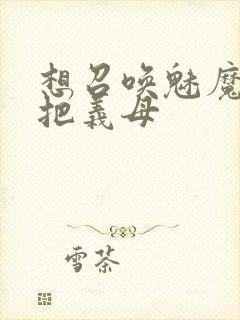 想召唤魅魔
把義母
雪茶